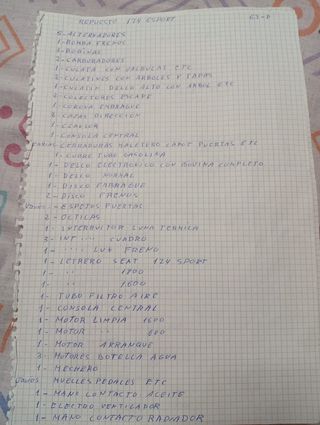 REPUESTO 124 ESPORT
5-ALTERNADORES
1-BOMBA FRENOS
1-BOBINAS
2-CARBURADORES
1-CULATA CON VALBULAS ETC
2-CULATINES CON ARBOLES Y TAPAS
1-CULATIN DELLO ALTO CON ARBOL ETC
2-COLECTORES ESCAPE
1-CORONA EMBRAGUE
3-CAJAS DIRECCION
1-CLAUSOR
1-CONSOLA CENTRAL
VARIAS-CERRADURAS MALETERO CAPOT PUERTAS ETC
1-CUBRE TUBO GASOLINA
1-DELLO ELECTRONICO CON BOVINA COMPLETO
1-DELLO NORMAL
1-DISCO EMBRAGUE
2-DISCO FRENOS
VARIOS-ESPEJOS PUERTAS
2-OCTICAS
1-INTERRUTOR LUNA TERMICA
3-INT " " CUADRO
1- " " LUZ FRENO
1-LETRERO SEAT 124 SPORT
1- " " 1800
1- " " 1.600
1-TUBO FILTRO AIRE
1-CONSOLA CENTRAL
1-MOTOR LIMPIA 1600
1-MOTOR " " 600
1-MOTOR ARRANQUE
3-MOTORES BOTELLA AGUA
1-MECHERO
VARIOS MUELLES PEDALES ETC
1-MANO CONTACTO ACEITE
1-ELECTRO VENTILADOR
1-MANO CONTACTO RADIADOR